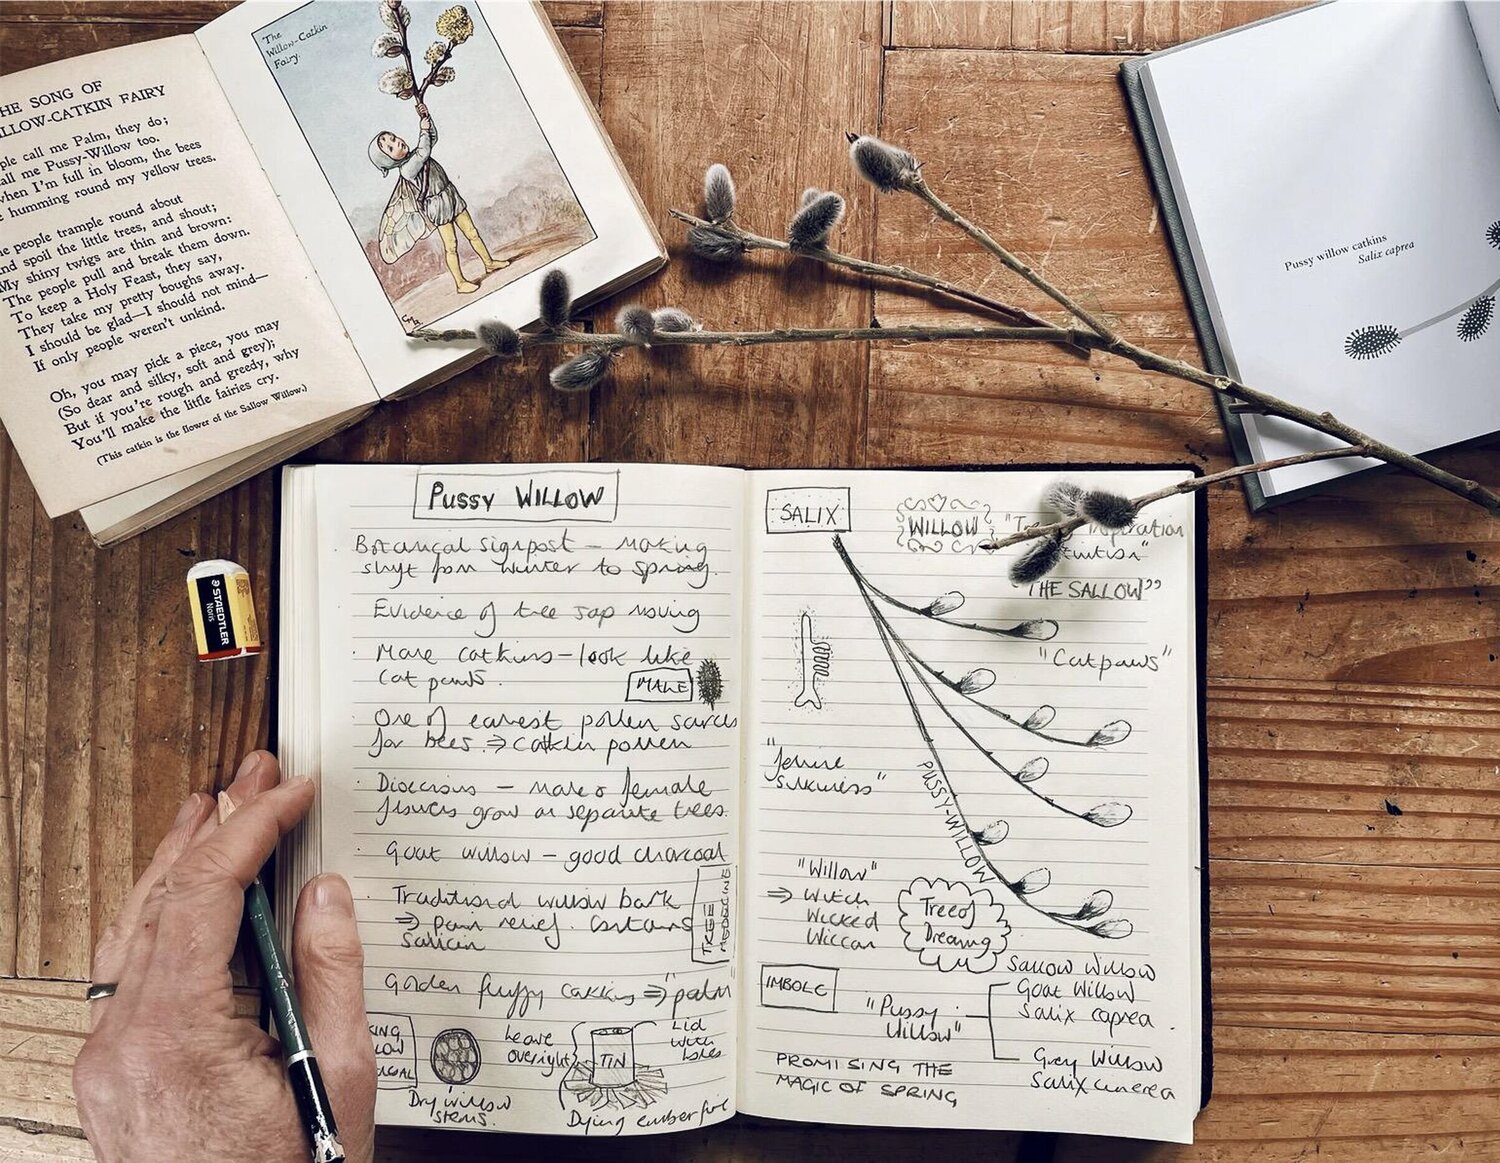 HE SONG OF
LLOW-CATKIN FAIRY
ple call me Palm, they do;
all me Pussy-Willow too.
when I'm full in bloom, the bees
humming round my yellow trees.
e people trample round about
nd spoil the little trees, and shout;
My shiny twigs are thin and brown:
The people pull and break them down.
To keep a Holy Feast, they say,
They take my pretty boughs away.
I should be glad—I should not mind—
If only people weren't unkind.
Oh, you may pick a piece, you may
(So dear and silky, soft and grey);
But if you're rough and greedy, why
You'll make the little fairies cry.
(This catkin is the flower of the Sallow Willow.)
The
Willow-Catkin
Fairy.
CMB
Pussy willow catkins
Salix caprea
STAEDTLER
Noris
PUSSY WILLOW
Botanical signpost – making
shift from winter to spring.
Evidence of tree sap moving
Male catkins – look like
cat paws.
MALE
One of earliest pollen sources
for bees ⇒ catkin pollen
Dioecious – male & female
flowers grow on separate trees.
Goat willow – good charcoal
Traditional willow bark
⇒ pain relief. Contains
Salicin
TREE
MEDICINE
Golden fluffy catkins ⇒ "palm
KING
LOW
COAL
Dry willow
stems.
Leave
overnight
TIN
Lid
with
holes
Dying ember fire
SALIX
WILLOW
"Tree inspiration
tuition"
"THE SALLOW"
"Catpaws"
silkiness"
PUSSY-WILLOW
"Willow"
⇒ Witch
Wicked
Wiccan
Tree of
Dreaming
IMBOLC
"Pussy
Willow"
Sallow Willow
Goat Willow
Salix caprea
Grey Willow
Salix cinerea
PROMISING THE
MAGIC OF SPRING